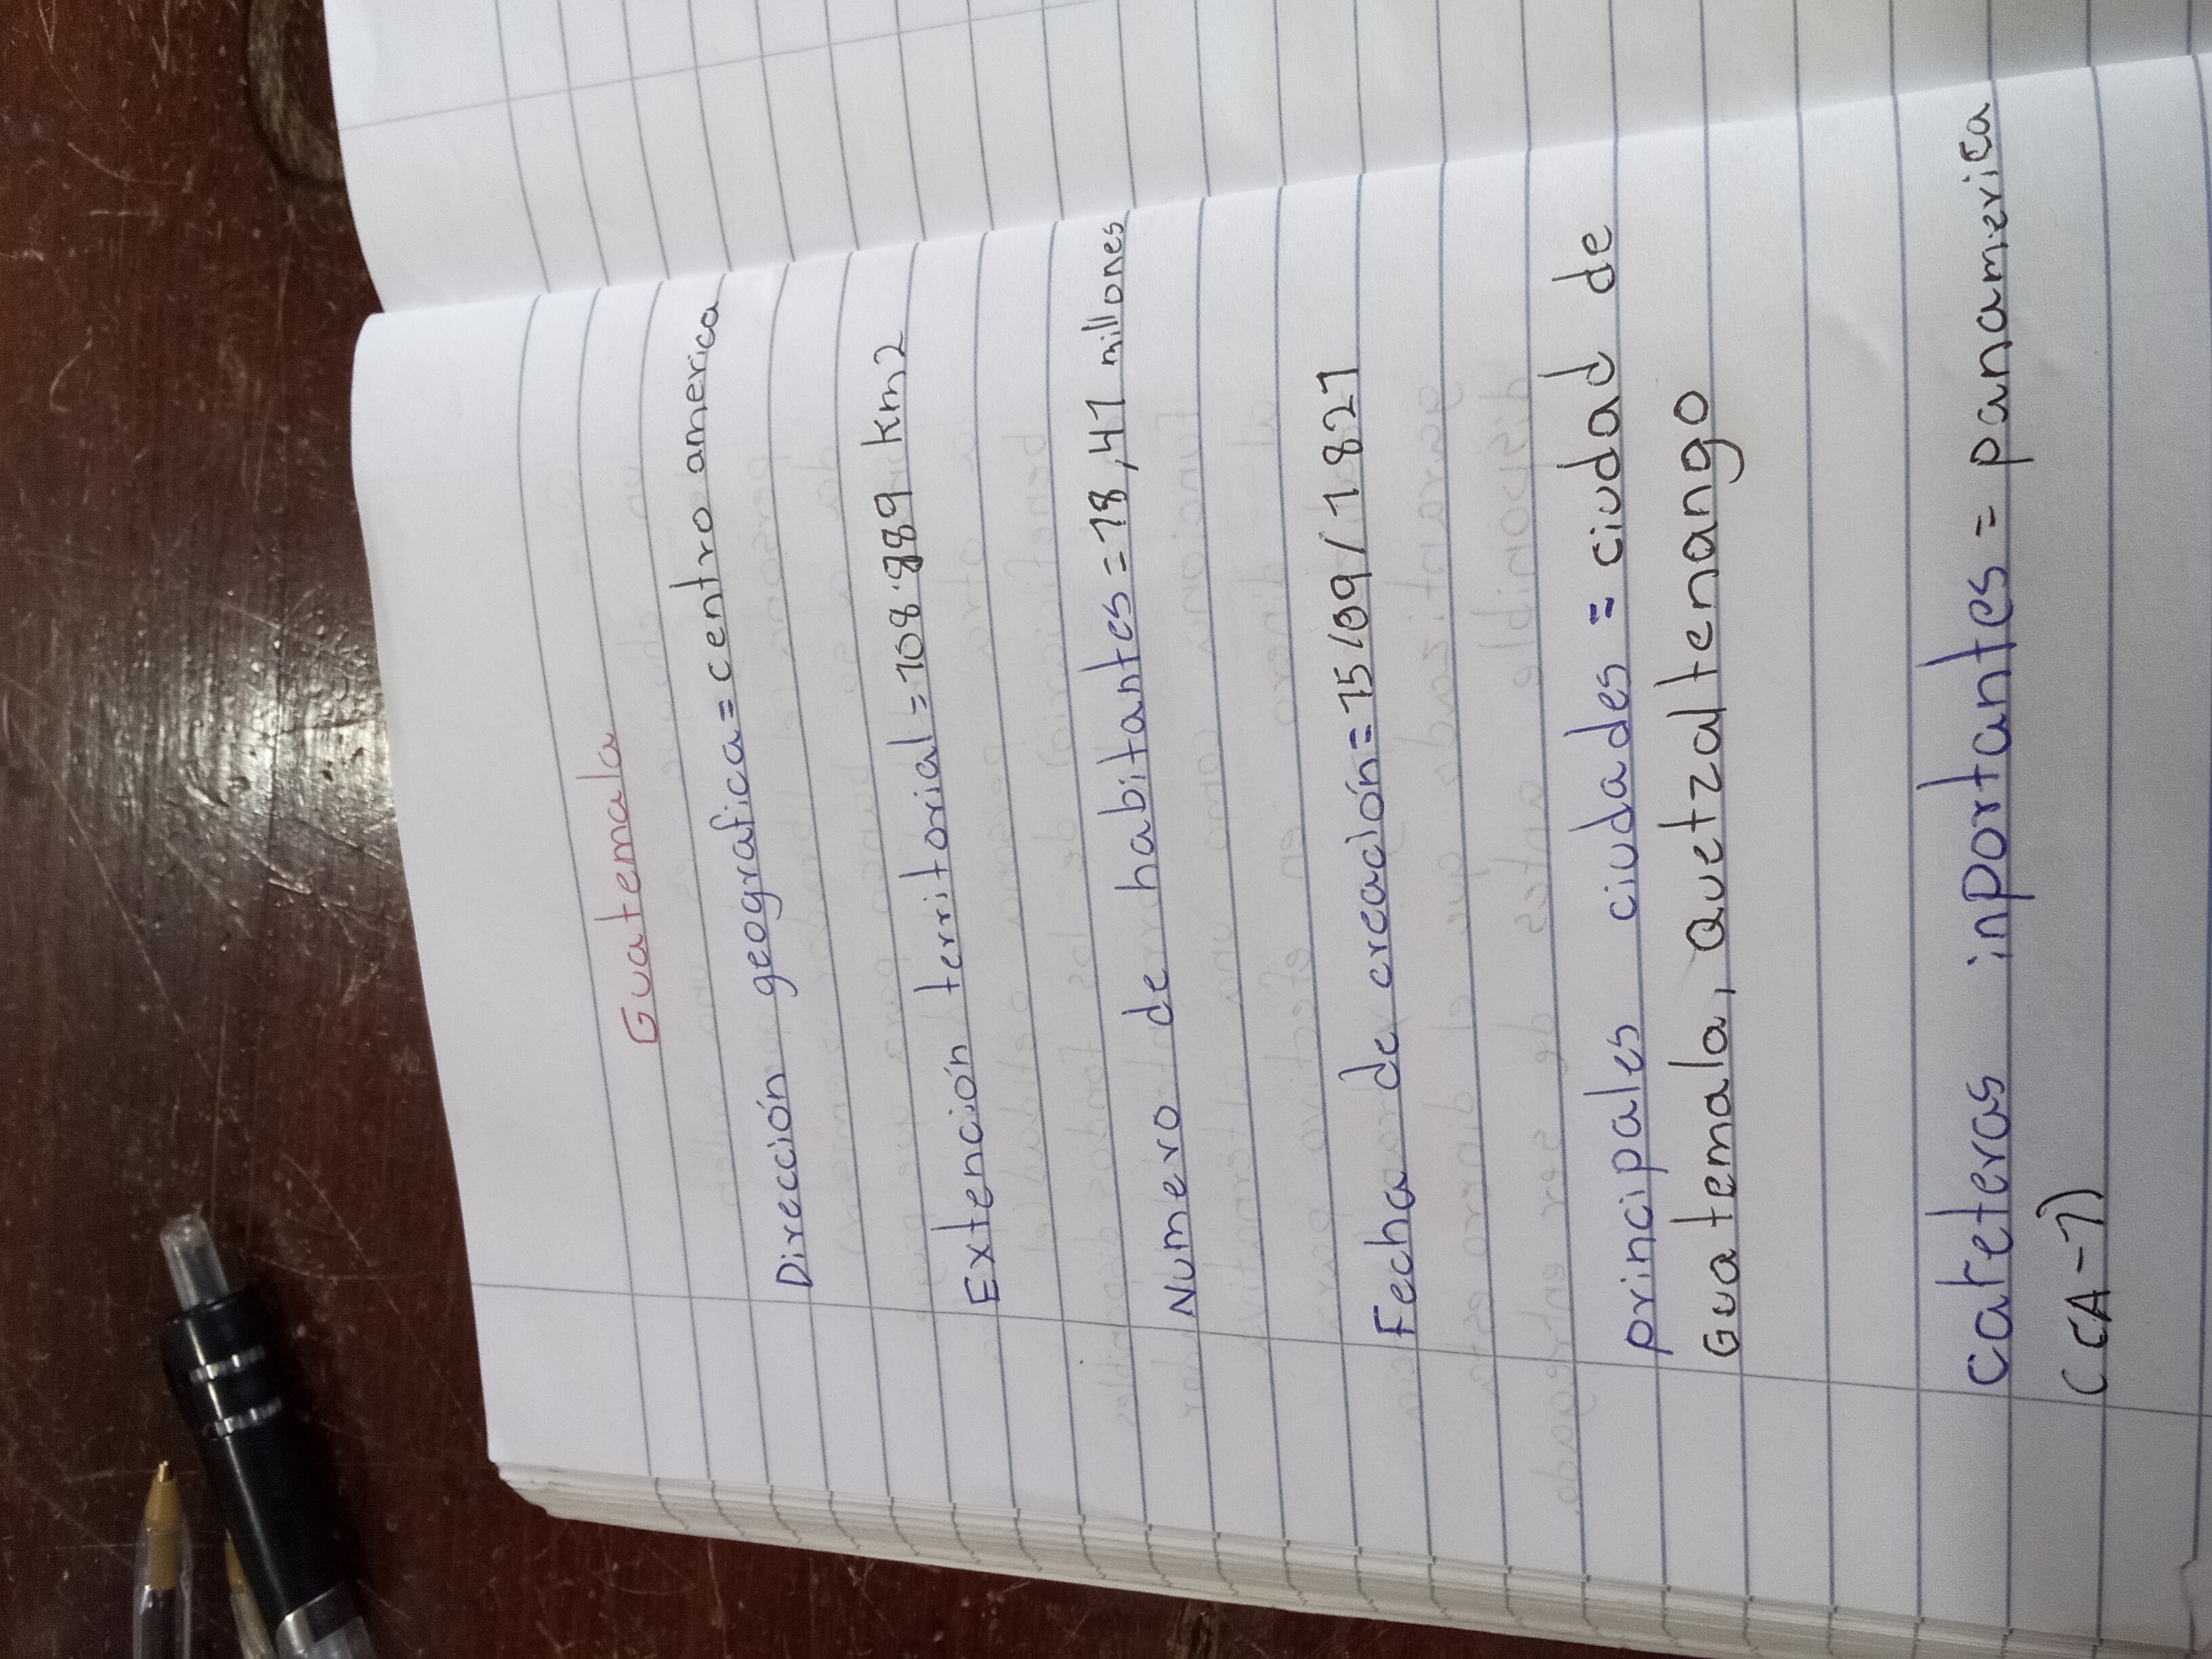 Guatemala
Dirección geografica = centro america
Extención territorial = 108.889 km2
Numero de habitantes = 18,41 millones
Fecha de creación = 15/09/1821
principales ciudades = ciudad de
Guatemala, Quetzaltenango
cateteras inportantes = panamerica
(CA-1)